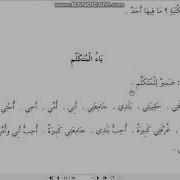 WWW.BANDICAM.COM
ـتَبَةِ ؟ مَا فِيهَا أَحَدٌ .
يَاءُ الْمُتَكَلِّمِ
: ضَمِيرٌ لِلْمُتَكَلِّمِ .
حَقِيبَتِي ، بَلَدِي ، جَامِعَتِي ، أَبِي ، أُمِّي ، أَخِي ، أُخْتِي
غُرْفَتِي كَبِيرَةٌ . أُحِبُّ بَلَدِي . جَامِعَتِي كَبِيرَةٌ . أُحِبُّ أَبِي وَأُمِّي